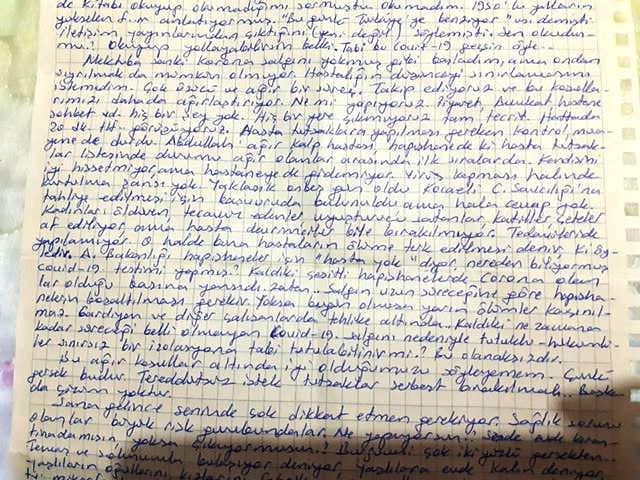 de kitabı okuyup okumadığımı sormuştu okumadım. 1930'lu yılların
yükselen anlatıyormuş. "Bu günkü Türkiye'ye benziyor" 'da demişti
iletişim, yayınlarından çıktığını (yeni değil) söylemişti. Sen okudun-
mu? Okuyup yollayabilirsin belki. Tabi bu Covid-19 geçsin öyle...
Mektuba sanki Korona salgını yokmuş gibi başladım, ama ondan
sıyrılmak da mümkün olmuyor. Hastalığın düşünceyi sınırlamasını
istemedim. Çok üzücü ve ağır bir süreç. Takip ediyoruz ve bu koşulla-
rımızı dahada ağırlaştırıyor. Ne mi yapıyoruz. Ziyaret, Avukat, hastane
sohbet vd. hiç bir şey yok. Hiç bir yere çıkmıyoruz tam tecrit. Haftada
20 dk. tlf. görüşüyoruz. Hasta tutsakların yapılması gereken kontrol, mua-
yene de durdu. Abdullah ağır kalp hastası, hapishanede ki hasta tutsak-
lar listesinde durumu ağır olanlar arasında ilk sıralarda. Kendisini
iyi hissetmiyor, ama hastaneye de gidemiyor. Virüs kapması halinde
kurtulma şansı yok. Yaklaşık onbeş gün oldu Kocaeli C. Savcılığı'na
tahliye edilmesi için başvuruda bulunuldu ama hala cevap yok.
Kadınları öldüren, tecavüz edenler uyuşturucu satanlar, katiller çeteler
af ediliyor, ama hasta devrimciler bile bırakılmıyor. Tedavileride
yapılamıyor. O halde buna hastaların ölüme terk edilmesi denir, ki öy-
ledir. A. Bakanlığı hapishaneler için "hasta yok" diyor, nereden biliyormuş
covid-19 testimi yapmış? Kaldıki çeşitli hapishanelerde Corona olan
lar olduğu basına yansıdı zaten.. Salgın uzun süreceğine göre hapisha-
nelerin boşaltılması gerekir. Yoksa bugün olmasa yarın ölümler kaçınıl-
maz. Gardiyan ve diğer çalışanlarda tehlike altında. Kaldıki ne zamana
kadar süreceği belli olmayan Covid-19 salgını nedeniyle tutuklu-hükümlü-
ler sınırsız bir izolasyona tabi tutulabilinir mi? Bu olanaksızdır.
Bu ağır koşullar altında iyi olduğumuzu söyleyemem. Çünkü
gerçek budur. Tereddütsüz istek tutsaklar serbest bırakılmalı.. Başka
da çözüm yoktur.
Sana gelince seninde çok dikkat etmen gerekiyor. Sağlık sorunu
olanlar büyük risk gurubundalar. Ne yapıyorsun? Sende evde karan-
tinadamısın, yoksa çıkıyormusun? Bu çok iki yüzlü gerçekten.
Temas ve solunumla bulaşıyor deniyor, yaşlılara evde kalın deniyor,
yaşlıların oğullarını, kızlarını